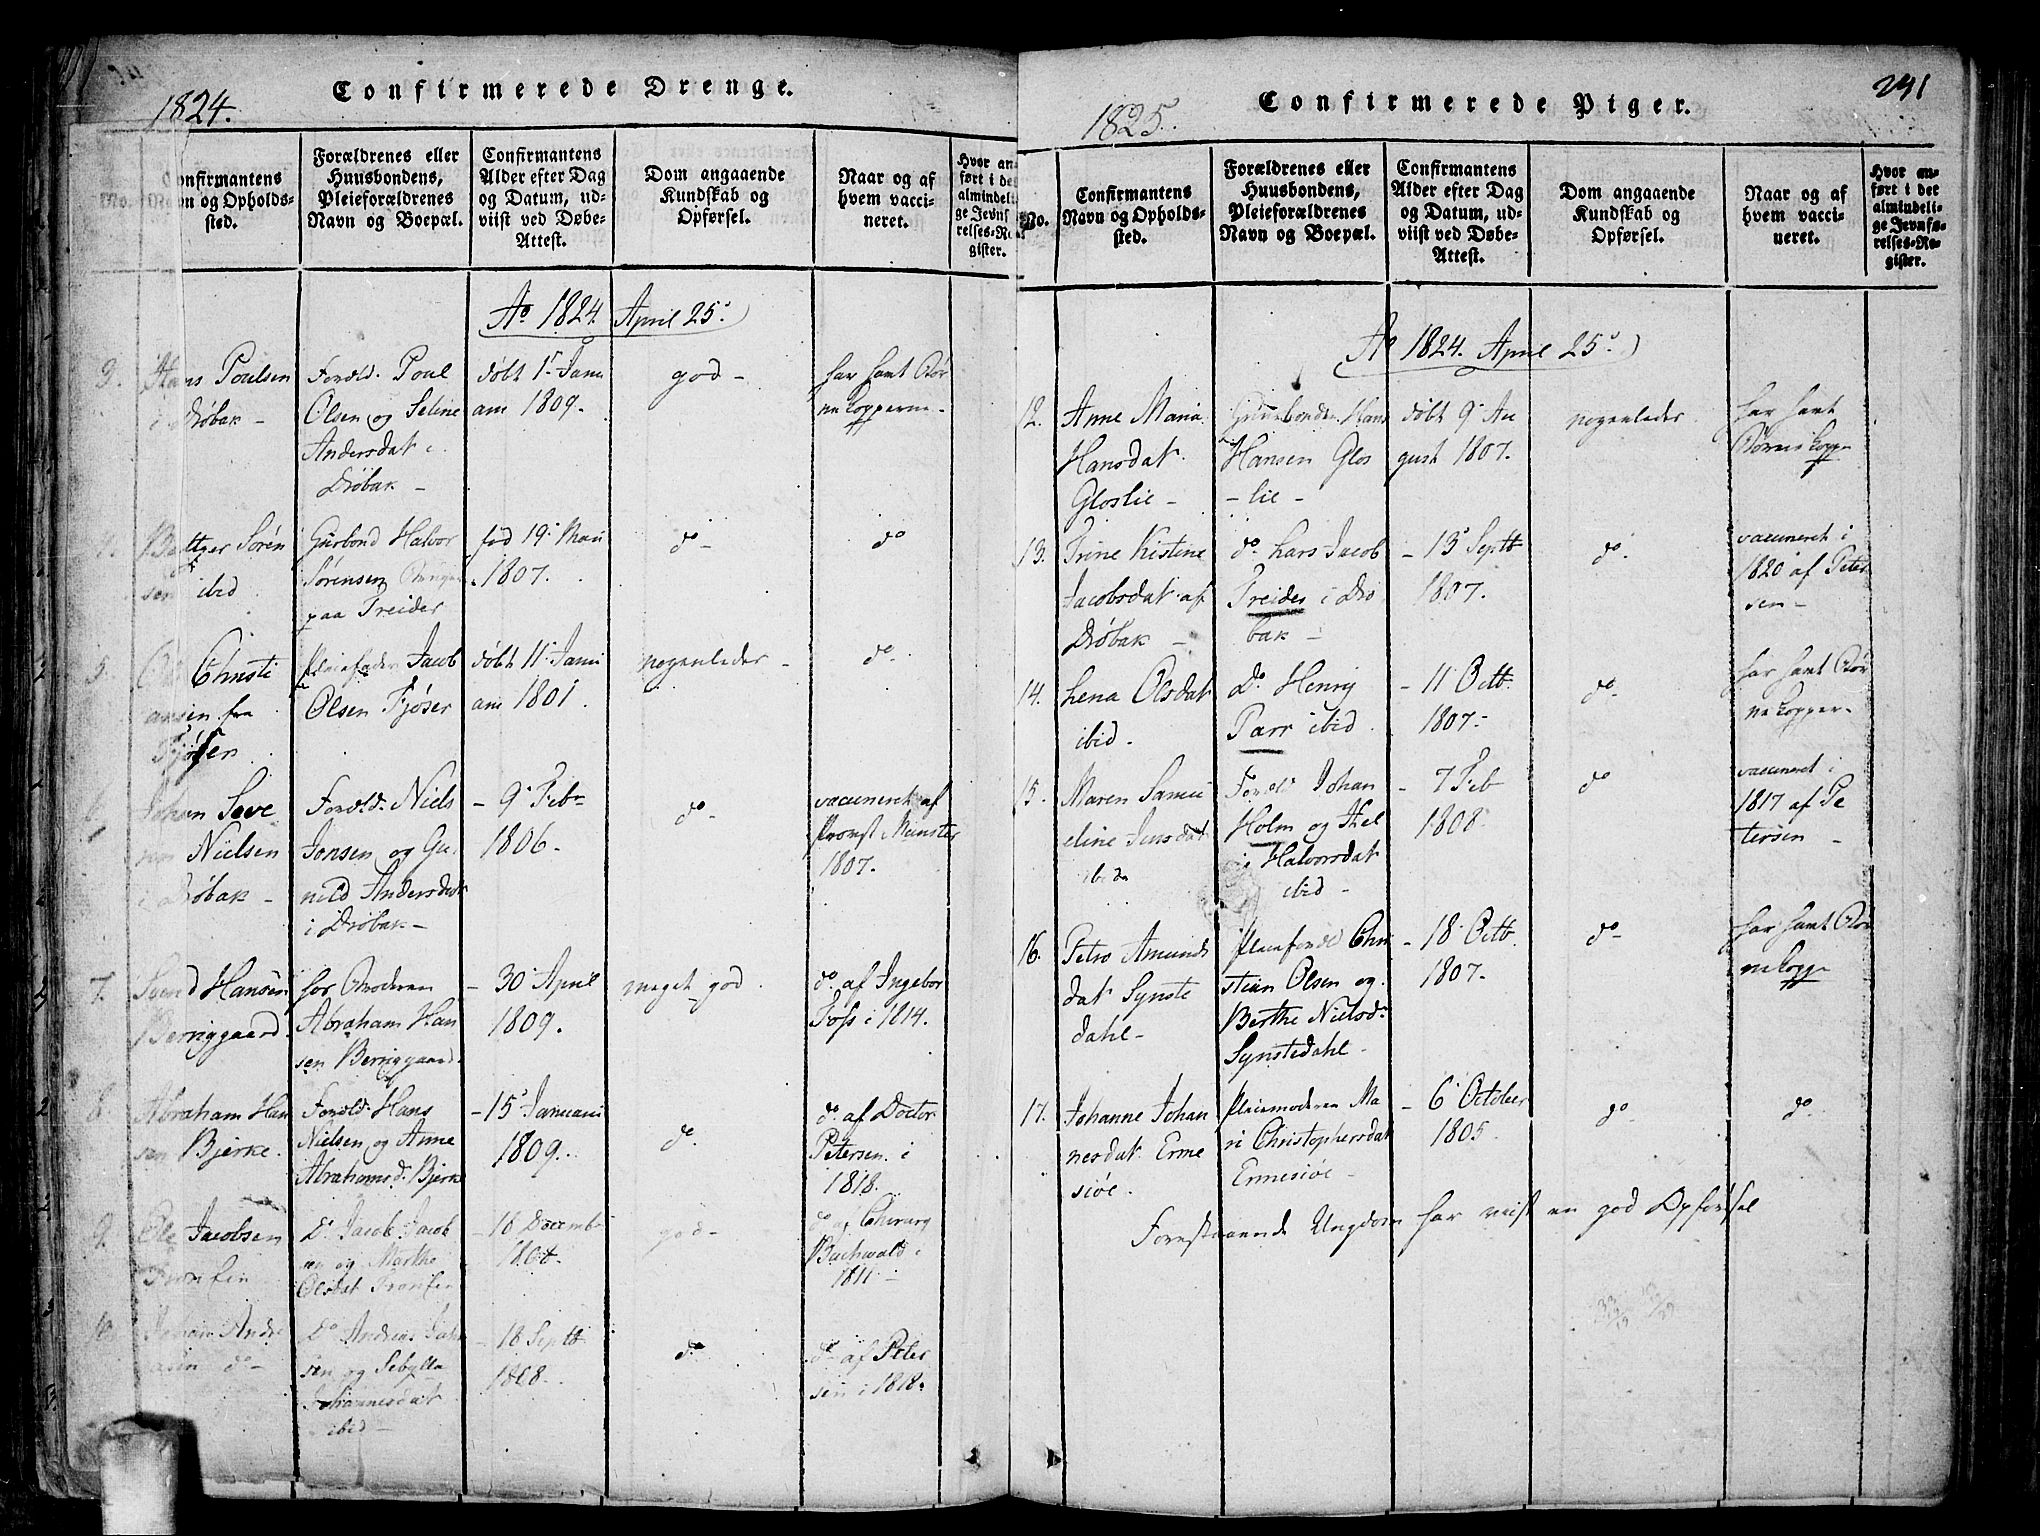 Confirmerede Drenge.
1824.
No.
Confirmantens Navn og Opholds-sted.
Forældrenes eller Huusbondens, Pleieforældrenes Navn og Boepæl.
Confirmantens Alder efter Dag og Datum, ud-viist ved Døbe-Attest.
Dom angaaende Kundskab og Opførsel.
Naar og af hvem vacci-neret.
Hvor an-ført i det almindeli-ge Jevnfø-relses-Re-gister.
Ao 1824 April 25.
3. Hans Poulsen
i Drøbak -
Foreld. Poul
Olsen og Seline
Andersdat i
Drøbak -
døbt 1. Janu
ar 1809.
god -
har havt Bør
nekopperne.
4. Søren
sen ibid
Halvor
Sørensen
paa Treider
fød 19. Mai
1807.
do -
do
5. Christi
ansen fra
Fjøser
Pleiefader Jacob
Olsen Fjøser
døbt 11. Janu
ar 1801.
nogenledes -
do
6. Johan
Nielsen
i Drøbak -
Foreld. Niels
Jonsen og Gu
nild Andersdat
i Drøbak -
- 9. Febr
1806.
do.
vaccineret af
Provst Münster
1807.
7. Hansen
Berriggaard.
hos Broderen
Abraham Han
sen Berriggaard.
- 30. April
1809.
meget god.
do af Ingebor
Foss i 1814.
8. Abraham Han
sen Bjerke.
Foreld. Hans
Nielsen og Anne
Abrahamsd. Bjerke
- 15. Januari
1809.
do.
do af Doctor
Petersen i
1818.
9. Ole Jacobsen
Do. Jacob Jacob
sen og Marthe
Olsdat
- 16 Decemb
god -
do af Chirurg
Buchwald i
1811 -
10. Johan Andre
asen do -
Do Andreas
sen og Sebylla
Johannesdat
ibid -
- 18 Septb
1808.
do
do af Peter
sen i 1818.
Confirmerede Piger.
241
1825.
No.
Confirmantens Navn og Opholds-sted.
Forældrenes eller Huusbondens, Pleieforældrenes Navn og Boepæl.
Confirmantens Alder efter Dag og Datum, ud-viist ved Døbe-Attest.
Dom angaaende Kundskab og Opførsel.
Naar og af hvem vacci-neret.
Hvor an-ført i det almindeli-ge Jevnfø-relses-Re-gister.
Ao 1824. April 25.
12. Anne Maria
Hansdat.
Gloslie -
Huusbonden Hans
Hansen Glos
- lie -
døbt 9. Au
gust 1807.
nogenledes
har havt
Børnekopp
13. Trine Kistine
Jacobsdat af
Drøbak -
do. hos Jacob
Treider i Drø
bak -
- 13. Septb
1807.
do.
vaccineret i
1820 af Peter
sen -
14. Lena Olsdat
ibid.
Do. Henry
Parr ibid.
- 11 Octb.
1807. -
do -
har havt Bør
nekopper -
15. Maren Samu
eline Jensdat
ibid
Foreld Johan
Holm og
Halvorsdat
ibid -
- 7 Feb
1808.
do
vaccineret i
1817 af Pe
tersen -
16. Amunds
dat Synste
dahl -
Pleieforeld Chri
stian Olsen og
Berthe Nielsd.
Synstedahl -
- 18. Octb.
1807. -
do -
har havt Bør
nekopp
17. Johanne Johan
nesdat Erme
siøe.
Pleiemoderen Ma
ri Christophersdat
Ermesiøe -
- 6. October
1805.
do
do.
Forestaaende Ungdom har viist en god Opførsel